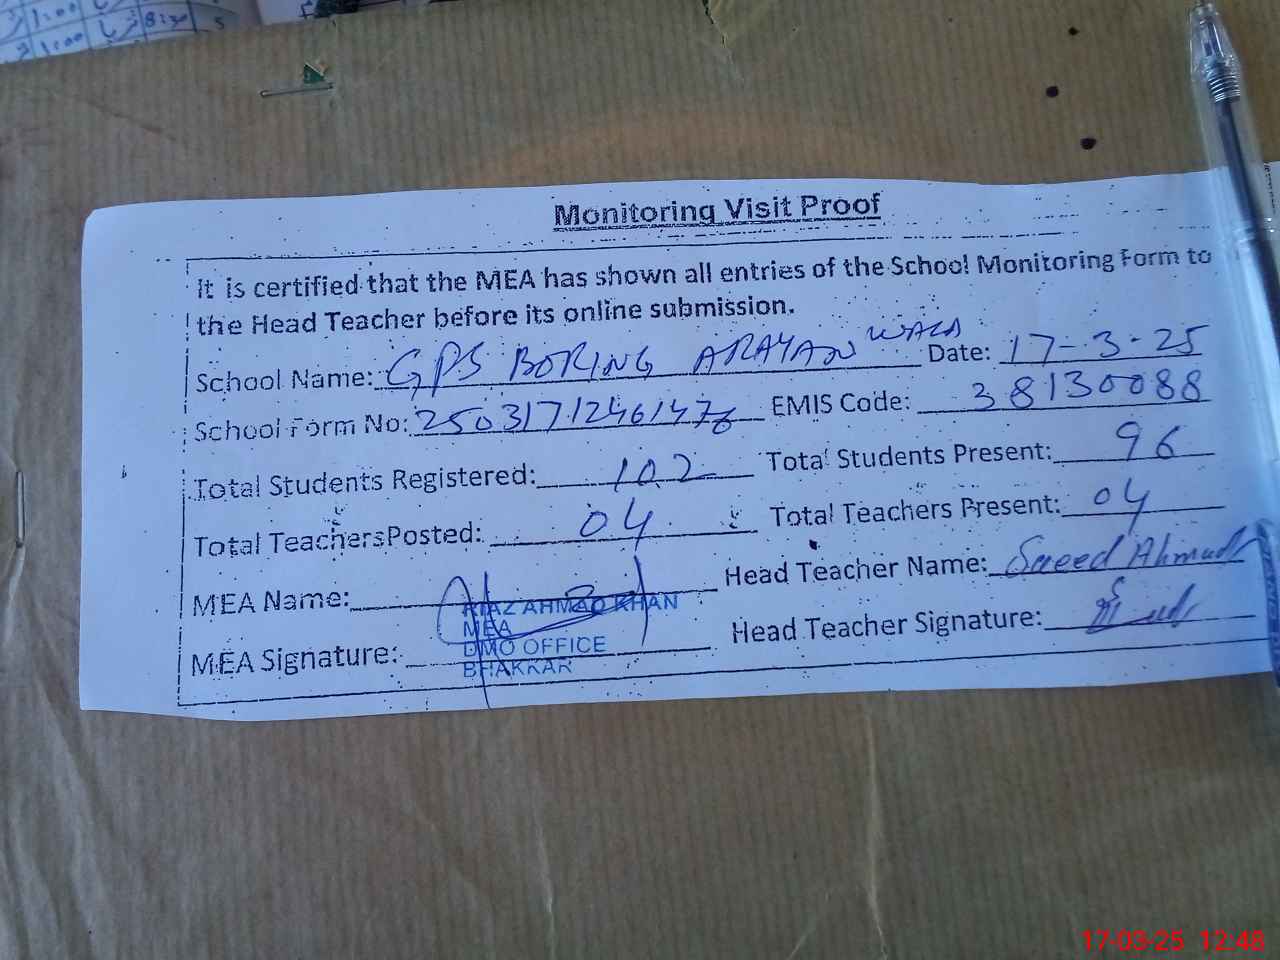 1:00 8:30 5
1:00
Monitoring Visit Proof
It is certified that the MEA has shown all entries of the School Monitoring Form to
the Head Teacher before its online submission.
School Name: GPS BORING ARAYAN WALA Date: 17-3-25
School Form No: EMIS Code: 38130088
Total Students Registered: 102 Total Students Present: 96
Total Teachers Posted: 04 Total Teachers Present: 04
MEA Name: Head Teacher Name: Saeed Ahmad
RIAZ AHMAD KHAN
MEA
MEA Signature: Head Teacher Signature:
DMO OFFICE
BHAKKAR
17-03-25 12:48